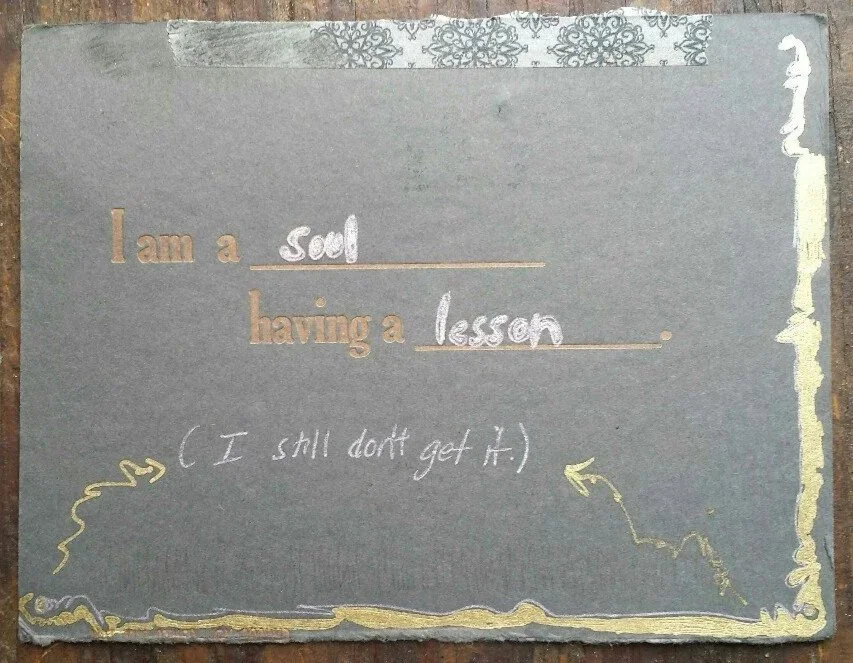 I am a soul
having a lesson.
(I still don't get it.)